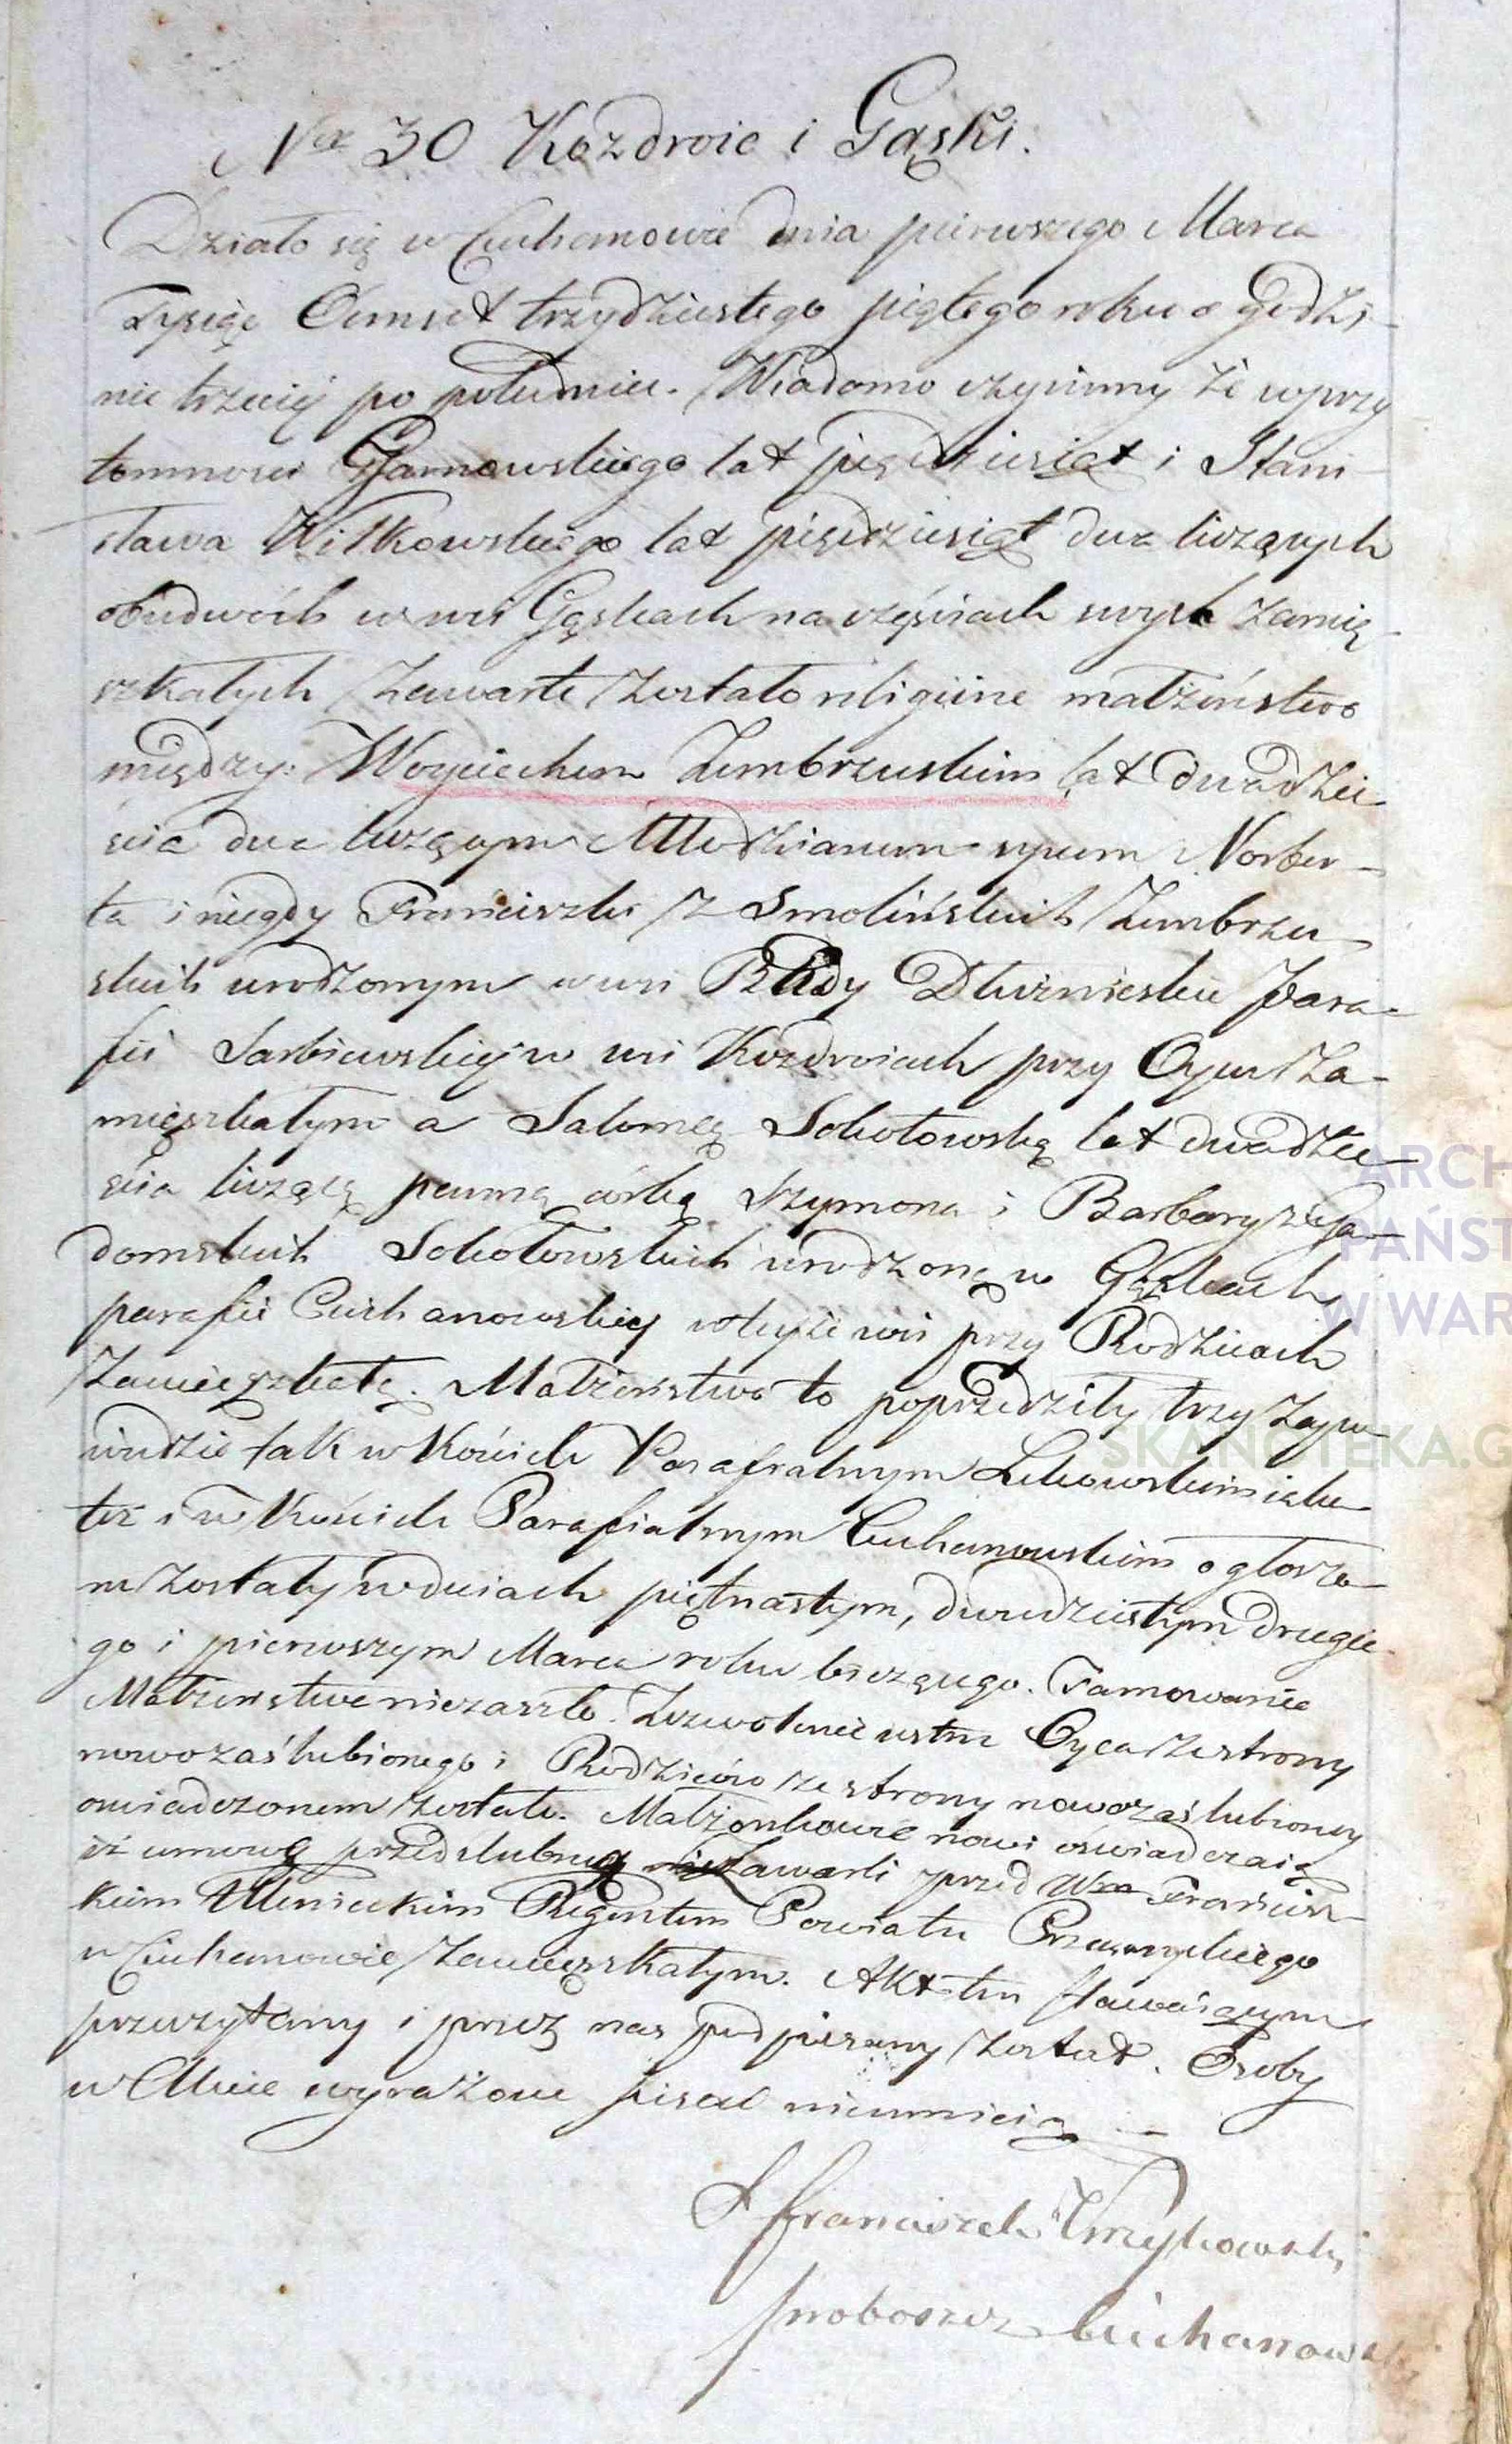 Nr 30 Kozdroie i Gąski.
Działo się w Ciechanowie dnia pierwszego Marca
Tysiąc Ośmset trzydziestego piątego roku o godzi-
nie trzeciej po południu. Wiadomo czyniemy że w przy
tomnosci lat pięćdziesiąt i Stani-
sława Witkowskiego lat pięćdziesiąt dwa liczących
obudwóch w wsi Gąskach na częściach swych zamię-
szkałych Zawarte Zostało religiine małżeństwo
między: Woyciechem Zembrzuskim lat dwadzie
ścia dwa liczącym Młodzianem synem Norber-
ta i niegdy Franciszki z Smolińskich Zembrzu
skich urodzonym w wsi Rudy Dłużniewskie para-
fii Sarbiewskiej w wsi Kozdroiach przy Oycu Za-
mięszkałym a Salomeą Sokołowską lat dwadzie
ścia liczącą panną córką Szymona i Barbary z Ga-
domskich Sokołowskich urodzoną w Gąskach
parafii Ciechanowskiey w teyże wsi przy Rodzicach
Zamięszkałą. Małżeństwo to poprzedziły trzy zapo
wiedzie tak w Kościele Parafialnym Lekowskim iako
też i w Kościele Parafialnym Ciechanowskim ogłoszo
ne Zostały w dniach piętnastym, dwudziestym drugie-
go i pierwszym Marca roku bieżącego. Tamowanie
Małżeństwa niezaszło. Zezwolenie ustne Oyca ze strony
nowozaślubionego i Rodziców ze strony nowozaślubioney
oświadczonem zostało. Małżonkowie nowi oświadczaią
iż umowę przedślubną zawarli przed Wm Francisz-
kiem Regentem Powiatu Przasnyskiego
w Ciechanowie Zamięszkałym. Akt ten stawaiącym
przeczytany i przez nas podpisany Został. Osoby
w Akcie wyrażone pisać nieumieią
X Franciszek
proboszcz Ciechanows
ARCH
PAŃST
W WAR
SKANOTEKA.G